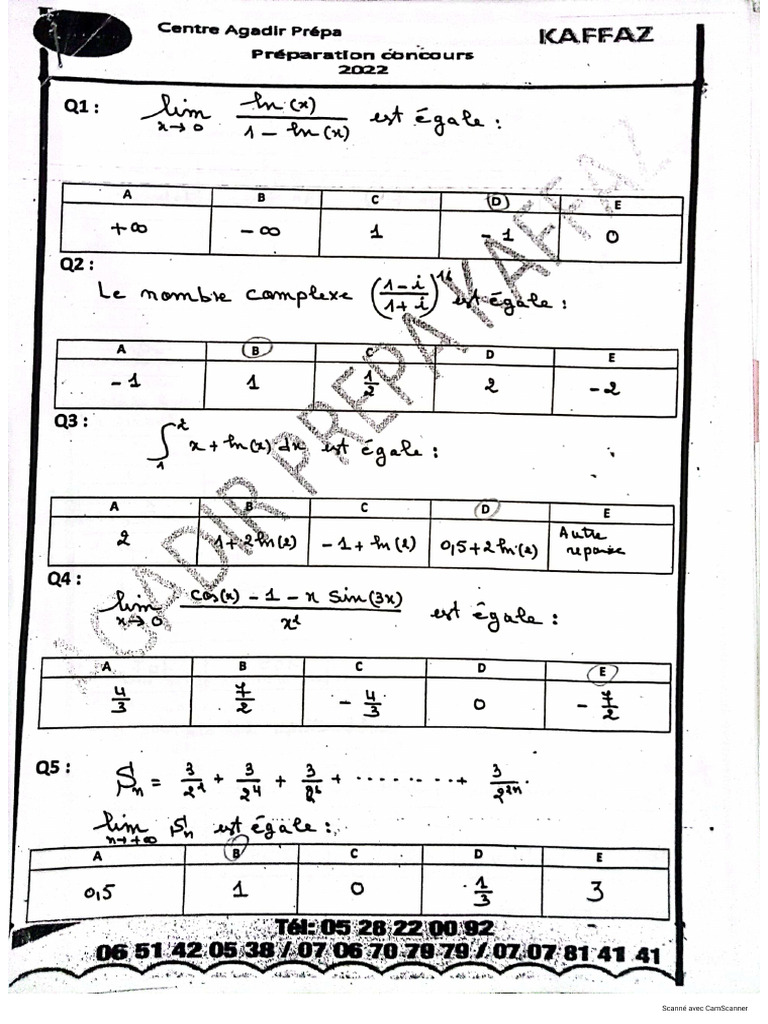 Centre Agadir Prépa
KAFFAZ
Préparation concours
2022
Q1 : lim x→0 ln(x) / (1 - ln(x)) est égale :
A B C D E
+∞ -∞ 1 -1 0
Q2 :
Le nombre complexe ((1-i)/(1+i))^16 est égale :
A B C D E
-1 1 1/2 2 -2
Q3 :
∫_1^2 x + ln(x) dx est égale :
A B C D E
2 1+2ln(2) -1+ln(2) 0,5+2ln(2) Autre reponse
Q4 :
lim x→0 (cos(x) - 1 - x Sin(3x)) / x² est égale :
A B C D E
4/3 7/2 -4/3 0 -7/2
Q5 : Sn = 3/2² + 3/2⁴ + 3/2⁶ + ········ + 3/2²ⁿ.
lim n→+∞ Sn est égale :
A B C D E
0,5 1 0 1/3 3
Tél: 05 28 22 00 92
06 51 42 05 38 / 07 06 70 79 79 / 07 07 81 41 41
AGADIR PREPA KAFFAZ
Scanné avec CamScanner